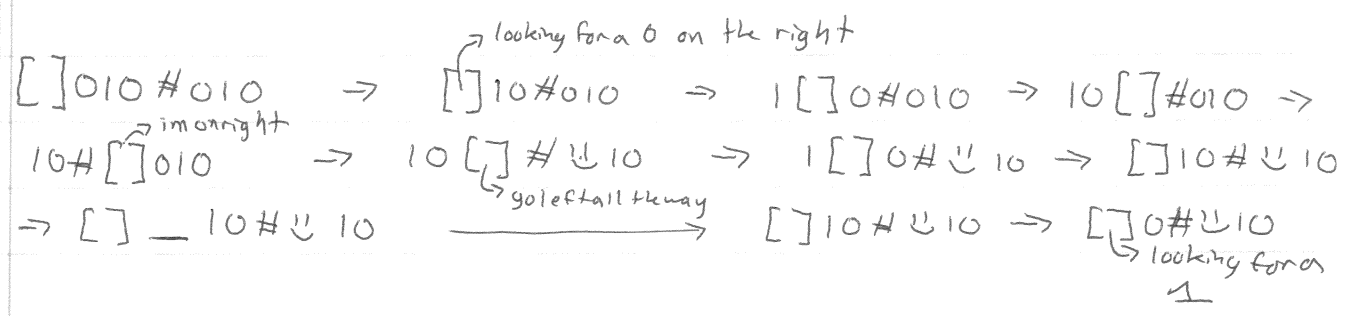 looking for a 0 on the right
[ ]010#010 → [ ]10#010 → 1[ ]0#010 → 10[ ]#010 →
im on right
10#[ ]010 → 10[ ]#☺10 → 1[ ]0#☺10 → [ ]10#☺10
go left all the way
→ [ ]_10#☺10 → [ ]10#☺10 → [ ]0#☺10
looking for a
1